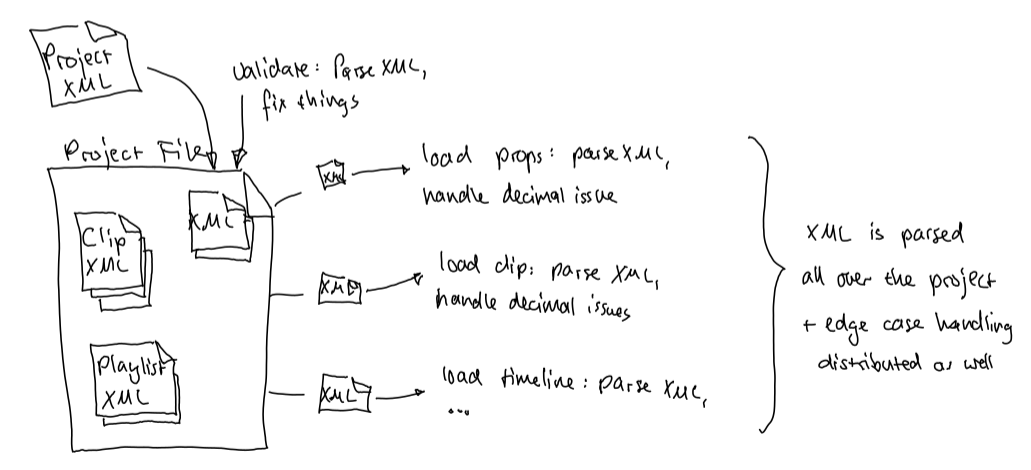 Project
XML
validate: Parse XML,
fix things
Project File
XML
Clip
XML
Playlist
XML
XML
load props: parse XML,
handle decimal issue
XML
load clip: parse XML,
handle decimal issues
XML
load timeline: parse XML,
...
XML is parsed
all over the project
+ edge case handling
distributed as well